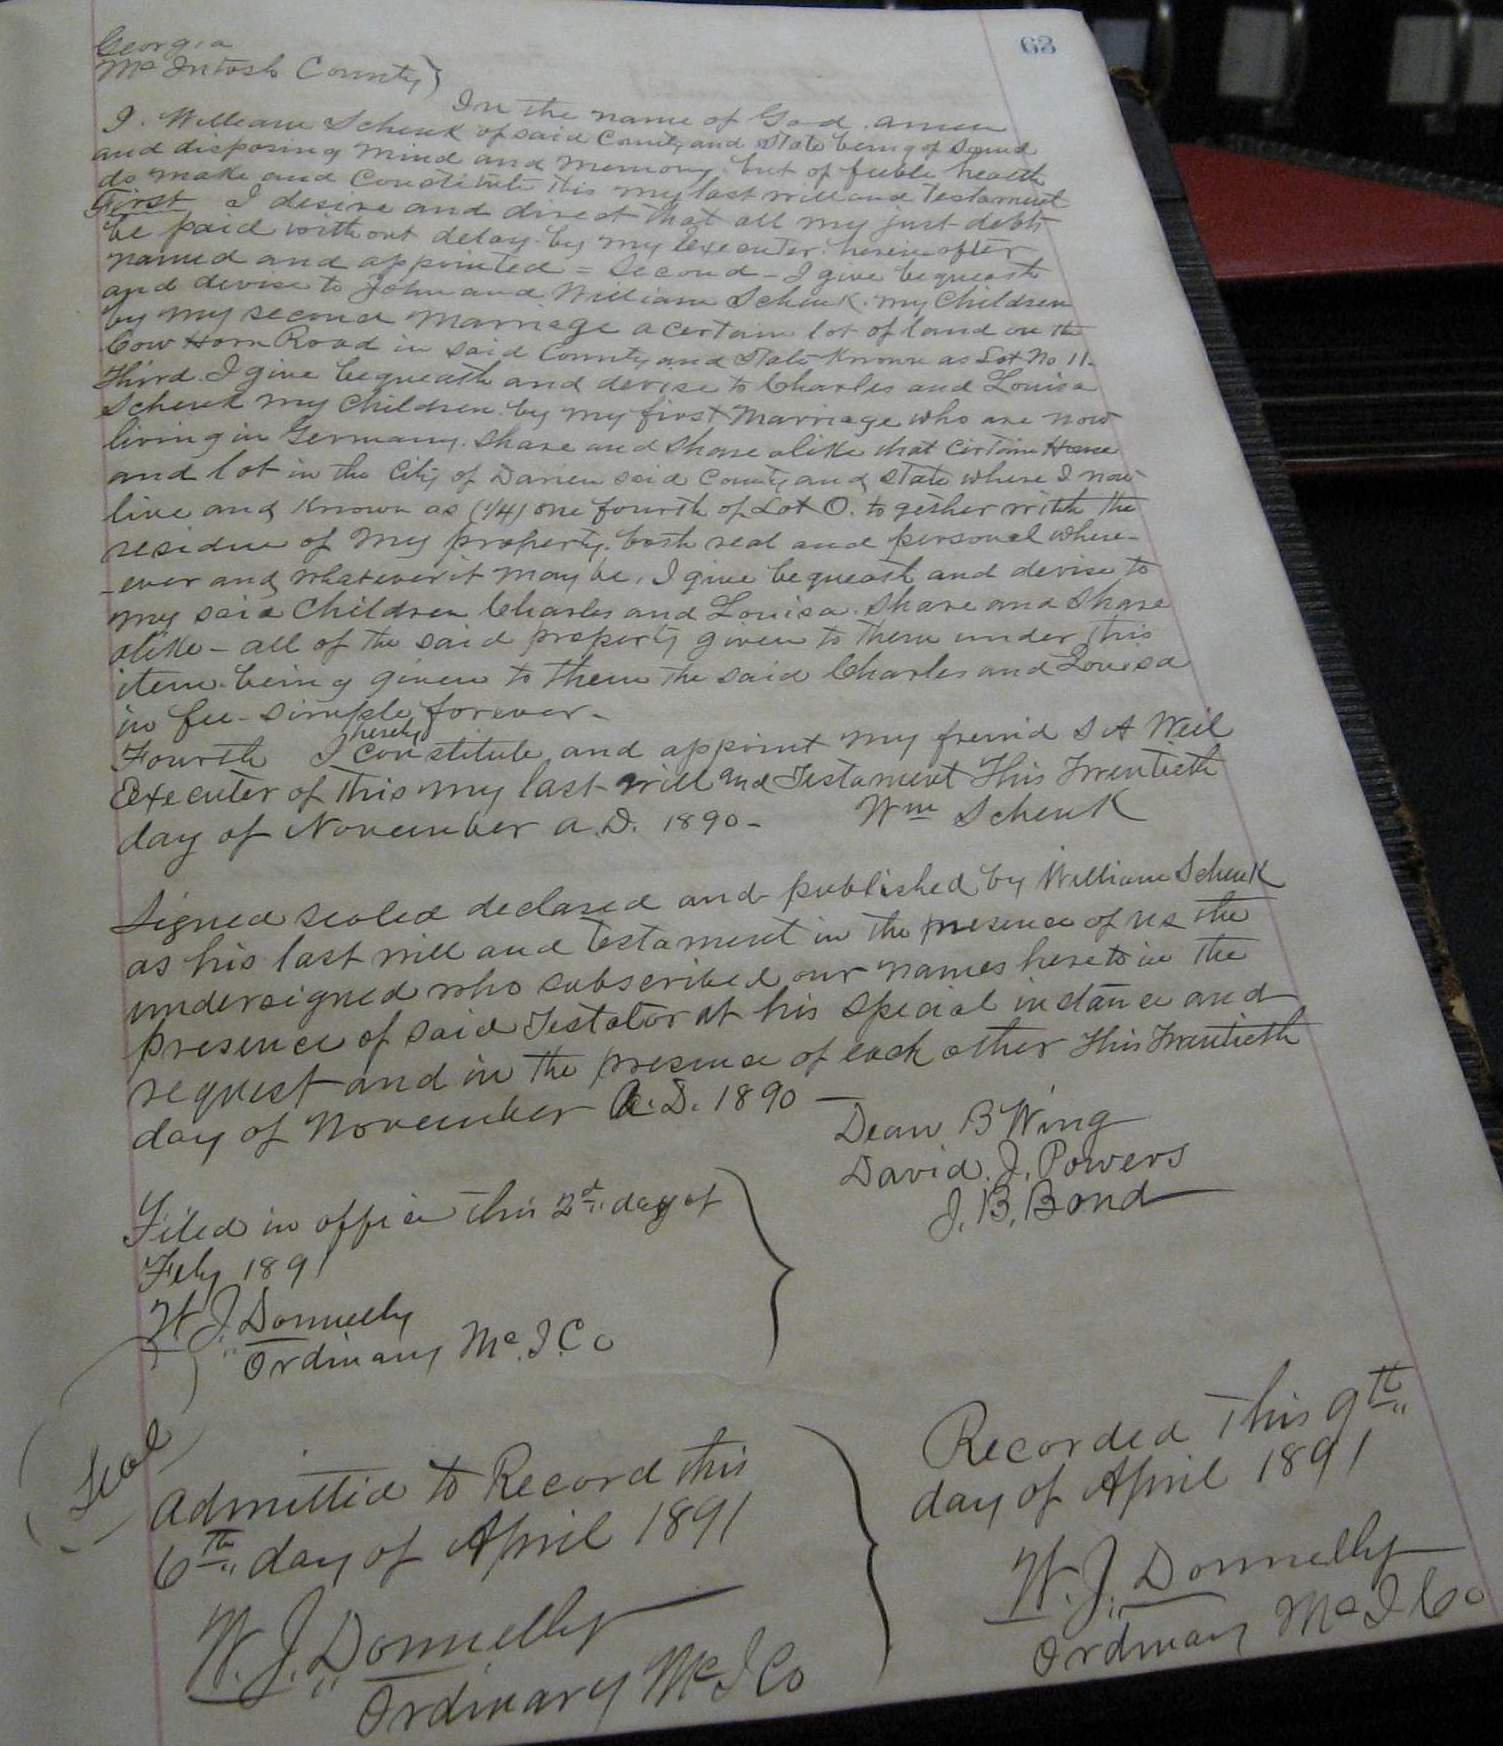 63
Georgia
McIntosh County }
In the name of God. amen
I. William Schenk of said County and State being of sound
and disposing mind and memory. but of feeble health
do make and constitute this my last will and testament
First I desire and direct that all my just debts
be paid without delay by my Executer herein after
named and appointed = Second - I give bequeath
and devise to John and William Schenk. my Children
by my second Marriage a certain lot of land on the
Cow Horn Road in said County and State Known as Lot No 11-
Third. I give bequeath and devise to Charles and Louisa
Schenk my Children by my first Marriage who are now
living in Germany. Share and Share alike that certain House
and lot in the City of Darien said County and State where I now
live and Known as (1/4) one fourth of Lot O. together with the
residue of my property. both real and personal where-
-ever and whatever it may be. I give bequeath and devise to
my said Children Charles and Louisa. Share and Share
alike - all of the said property given to them under this
item. being given to them the said Charles and Louisa
in fee-simple forever-
Fourth I hereby constitute and appoint my freind S A Weil
Executer of this my last will and Testament This Twentieth
day of November A.D. 1890-
Wm Schenk
Signed sealed declared and published by William Schenk
as his last will and testament in the presence of us the
undersigned who subscribed our names hereto in the
presence of said Testator at his special instance and
request and in the presence of each other This Twentieth
day of November A.D. 1890 —
Dean B Wing
David. J. Powers
J. B. Bond
Filed in office this 2d day of
Feby 1891
W. J. Donnelly
Ordinary Mc.I.Co
Seal
Admitted to Record this
6th day of April 1891
W. J. Donnelly
Ordinary McI Co
Recorded This 9th
day of April 1891
W. J. Donnelly
Ordinary McI Co